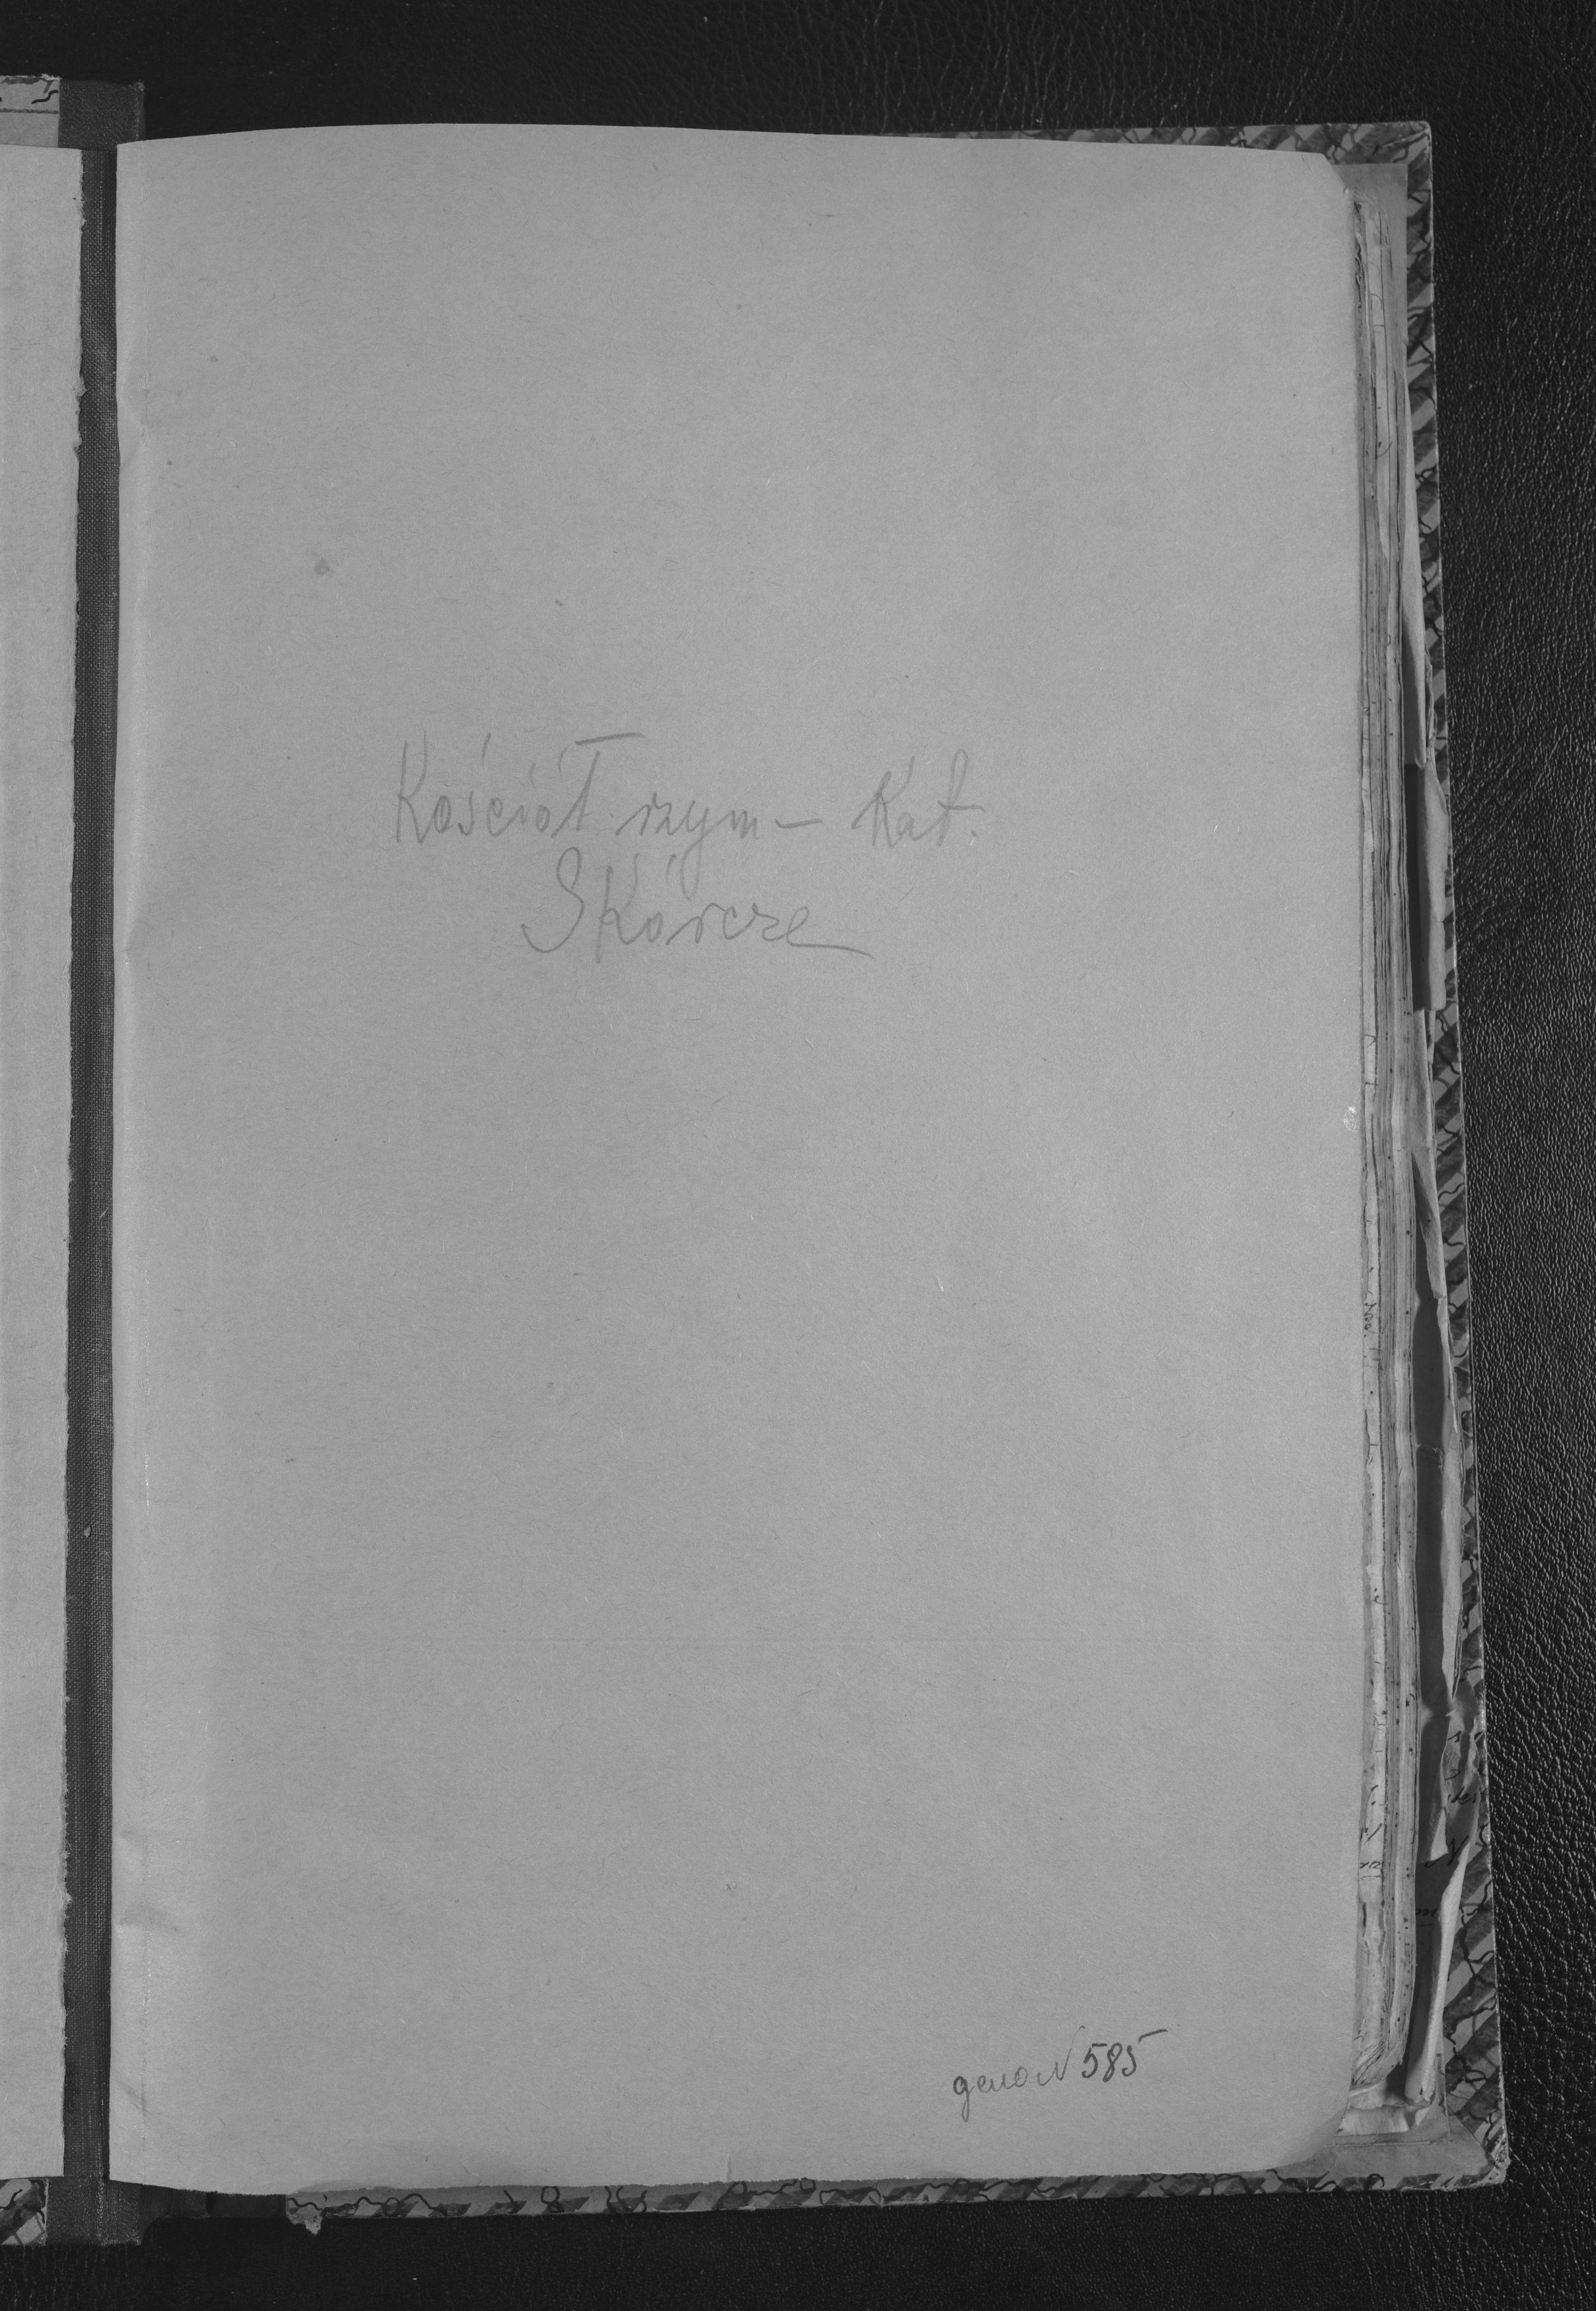 Kościół rzym – Kat.
Skórcze
дело N 585